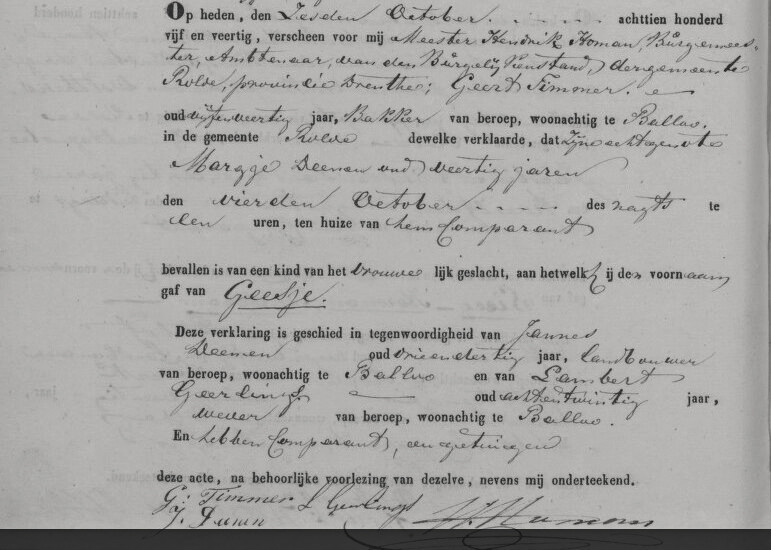 Op heden, den Zesden October. - - - - achttien honderd
vijf en veertig, verscheen voor mij Meester Hendrik Homan, Burgemees-
ter, Ambtenaar, van den Burgerlijken Stand, der gemeente
Rolde, provincie Drenthe; Geert Timmer.
oud vijfenveertig jaar, Bakker van beroep, woonachtig te Balloo.
in de gemeente Rolde dewelke verklaarde, dat zijne echtgenote
Margje Deenen oud veertig jaren
den vierden October - - - - des nagts te
een uren, ten huize van hem Comparant
bevallen is van een kind van het Vrouwelijk geslacht, aan hetwelk hij den voornaam
gaf van Geesje.
Deze verklaring is geschied in tegenwoordigheid van Jannes
Deenen oud drieendertig jaar, landbouwer
van beroep, woonachtig te Balloo en van Lambert
Geerlings oud achtentwintig jaar,
wever van beroep, woonachtig te Balloo.
En hebben Comparant, en getuigen
deze acte, na behoorlijke voorlezing van dezelve, nevens mij onderteekend.
G: Timmer. L Geerlings
J. Deenen H. Homan